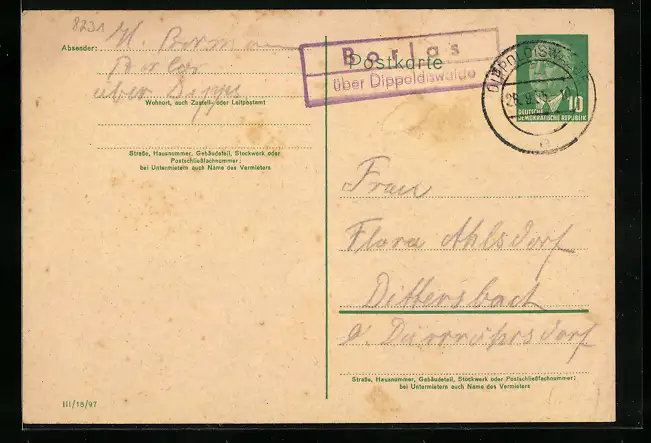 8231
Absender: H. Borman
Borlas
über Dipps
Wohnort, auch Zustell- oder Leitpostamt
Straße, Hausnummer, Gebäudeteil, Stockwerk oder
Postschließfachnummer;
bei Untermietern auch Name des Vermieters
III/18/97
Postkarte
Borlas
über Dippoldiswalde
DIPPOLDISWALDE
10
DEUTSCHE
DEMOKRATISCHE REPUBLIK
Frau
Flora Ahlsdorf
Dittersbach
b. Dürrröhrsdorf
Straße, Hausnummer, Gebäudeteil, Stockwerk oder Postschließfachnummer;
bei Untermietern auch Name des Vermieters